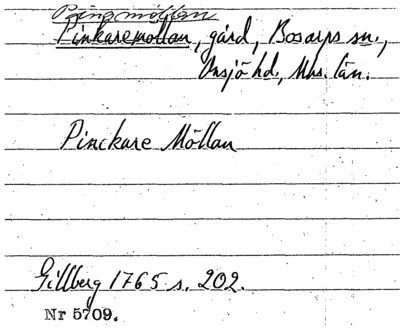 Pingmöllan
Pinkaremöllan, gård, Bosarps sn.,
Onsjö hd., Mhs. län.
Pinckare Möllan
Gillberg 1765 s. 202.
Nr 5709.